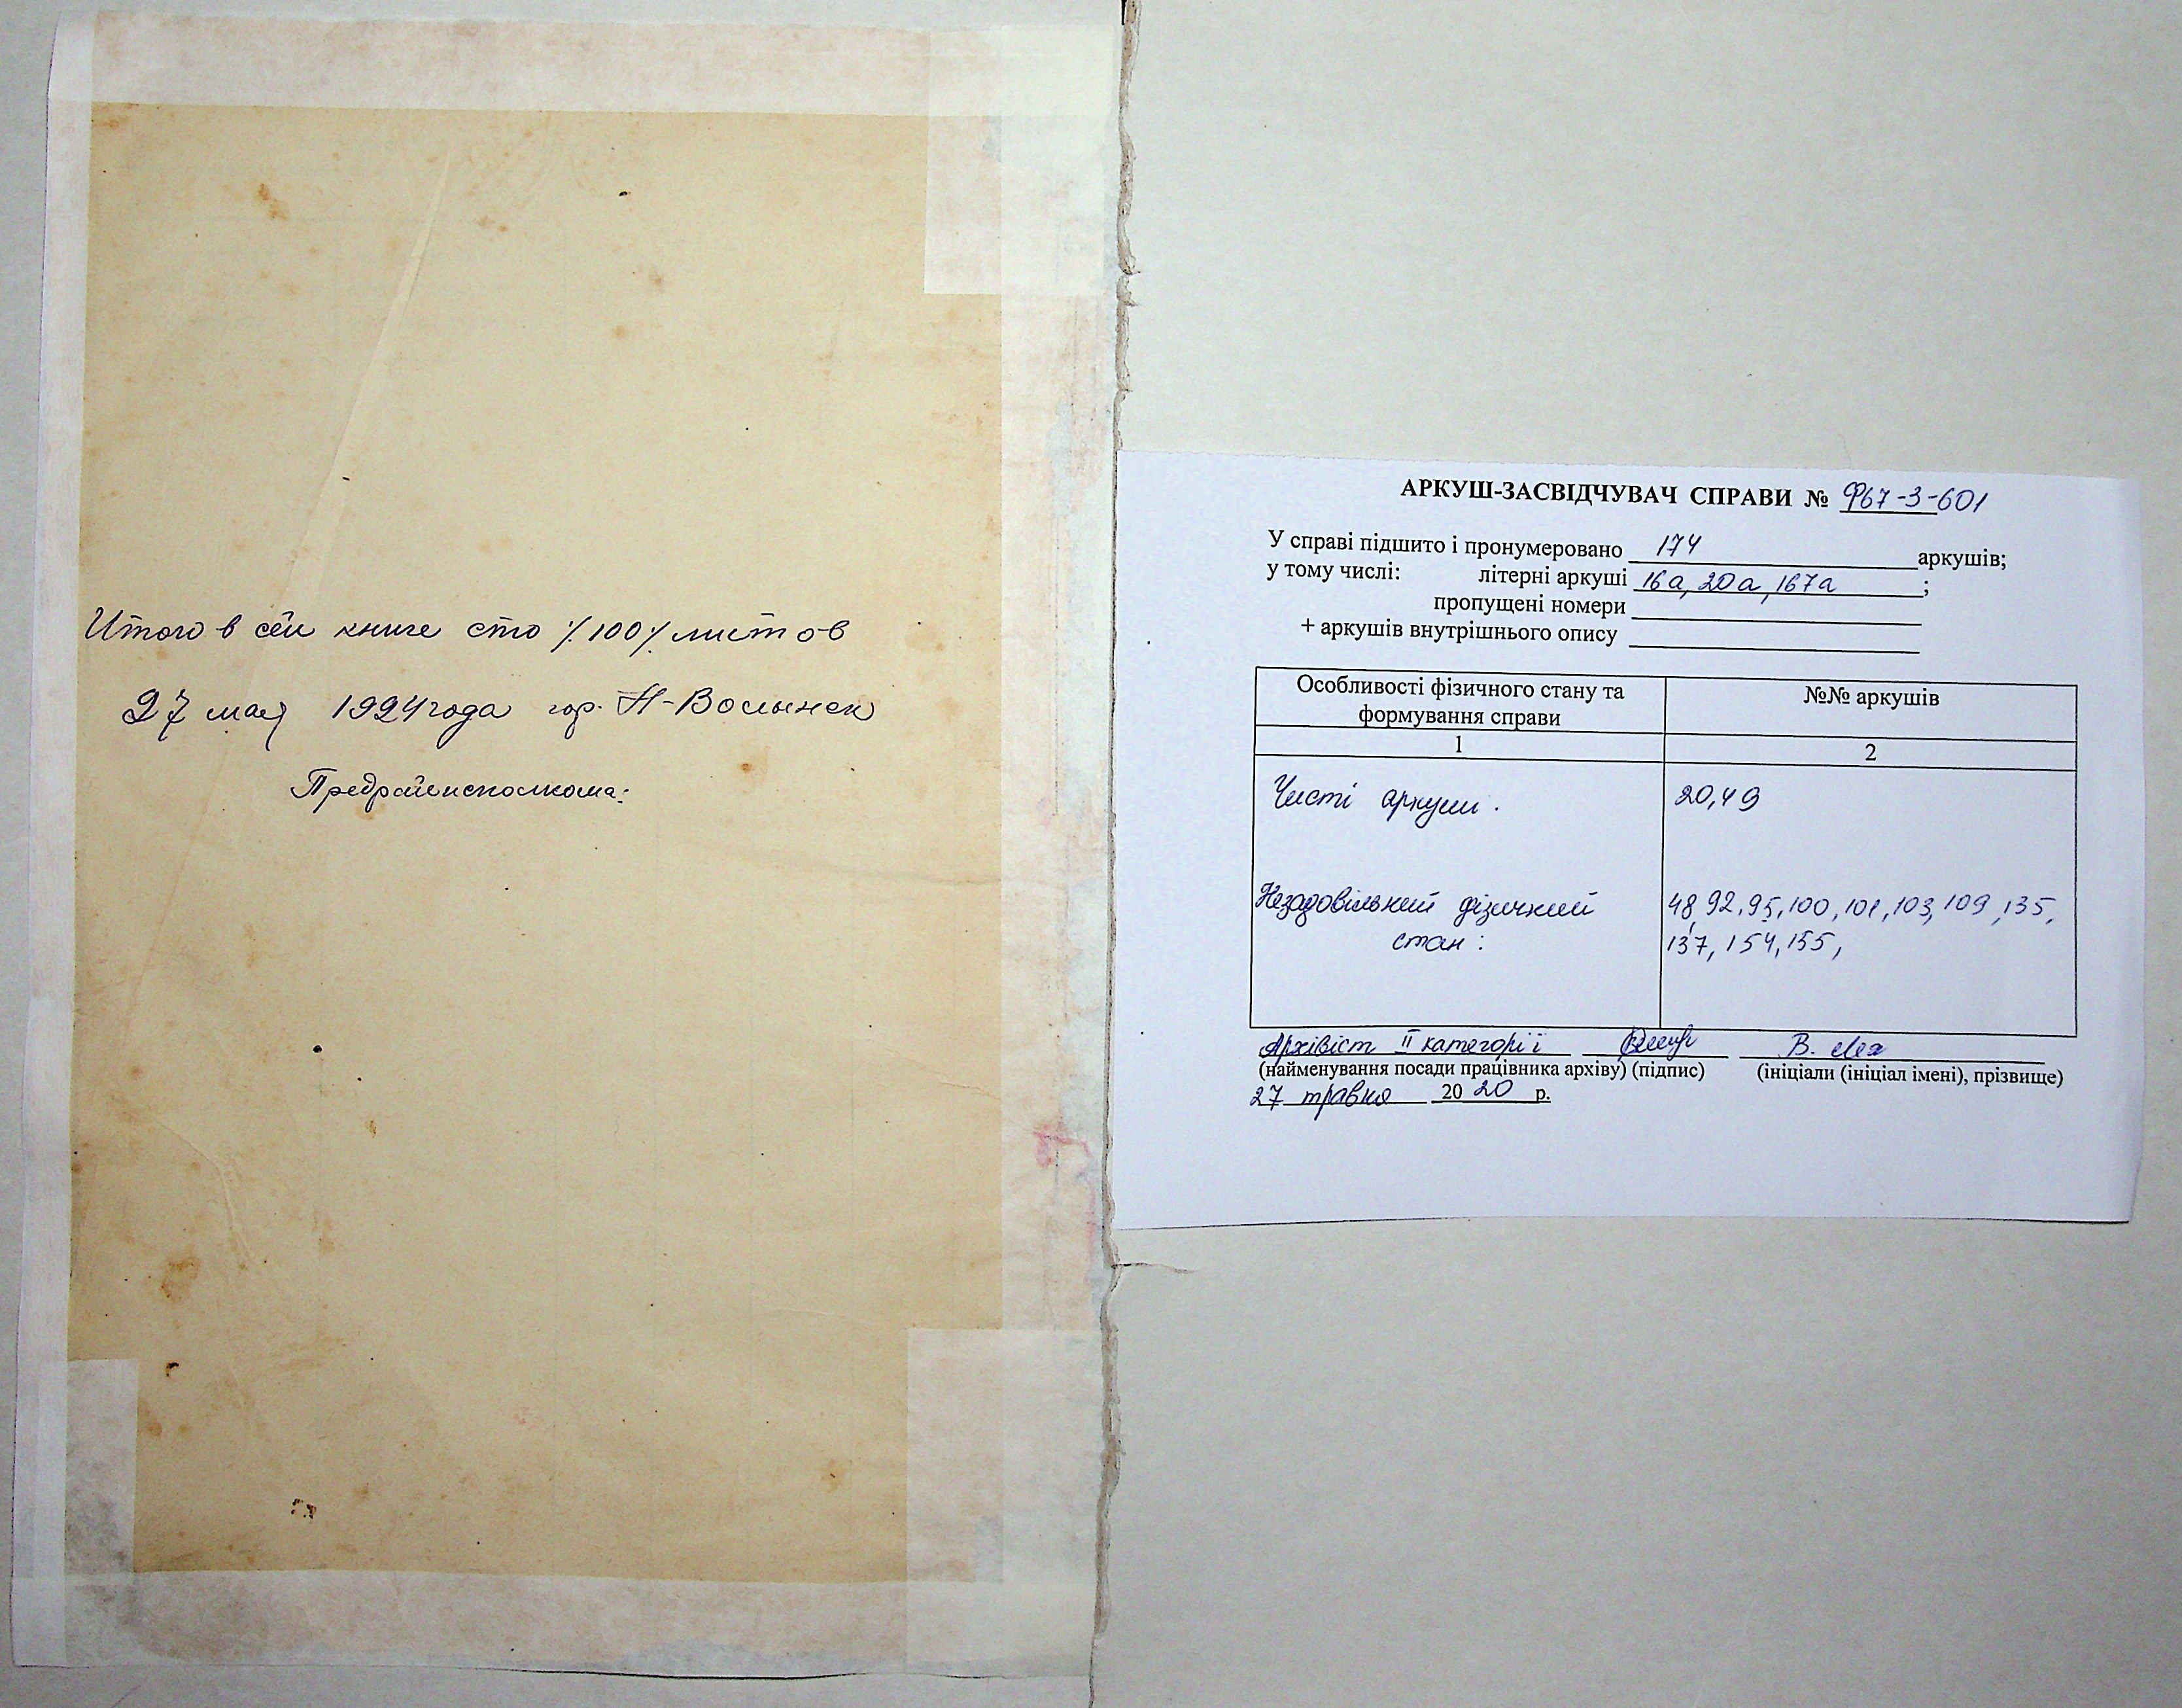 Итого в сей книге сто /.100/. листов
27 мая 1924 года гор. Н-Волынск
Предрайисполкома:
АРКУШ-ЗАСВІДЧУВАЧ СПРАВИ № Ф67-3-601
У справі підшито і пронумеровано 174 аркушів;
у тому числі: літерні аркуші 16а, 20а, 167а ;
пропущені номери
+ аркушів внутрішнього опису
Особливості фізичного стану та формування справи
№№ аркушів
1
2
Чисті аркуши.
20,49
Незадовільний фізичний
стан:
48, 92, 95, 100, 101, 103, 109, 135,
137, 154, 155,
Архівіст ІІ категорії В.
(найменування посади працівника архіву) (підпис) (ініціали (ініціал імені), прізвище)
27 травня 2020 р.